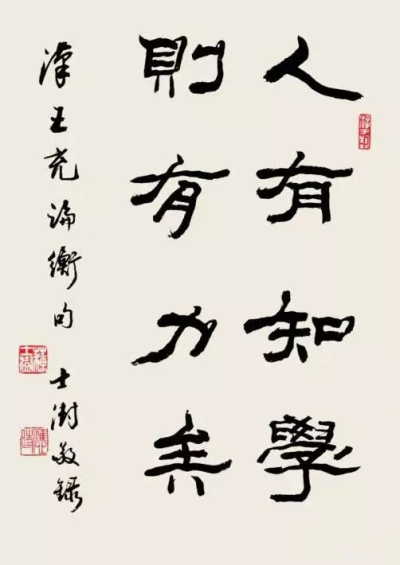 人有知學
則有力矣
漢王充論衡句 士澍敬錄